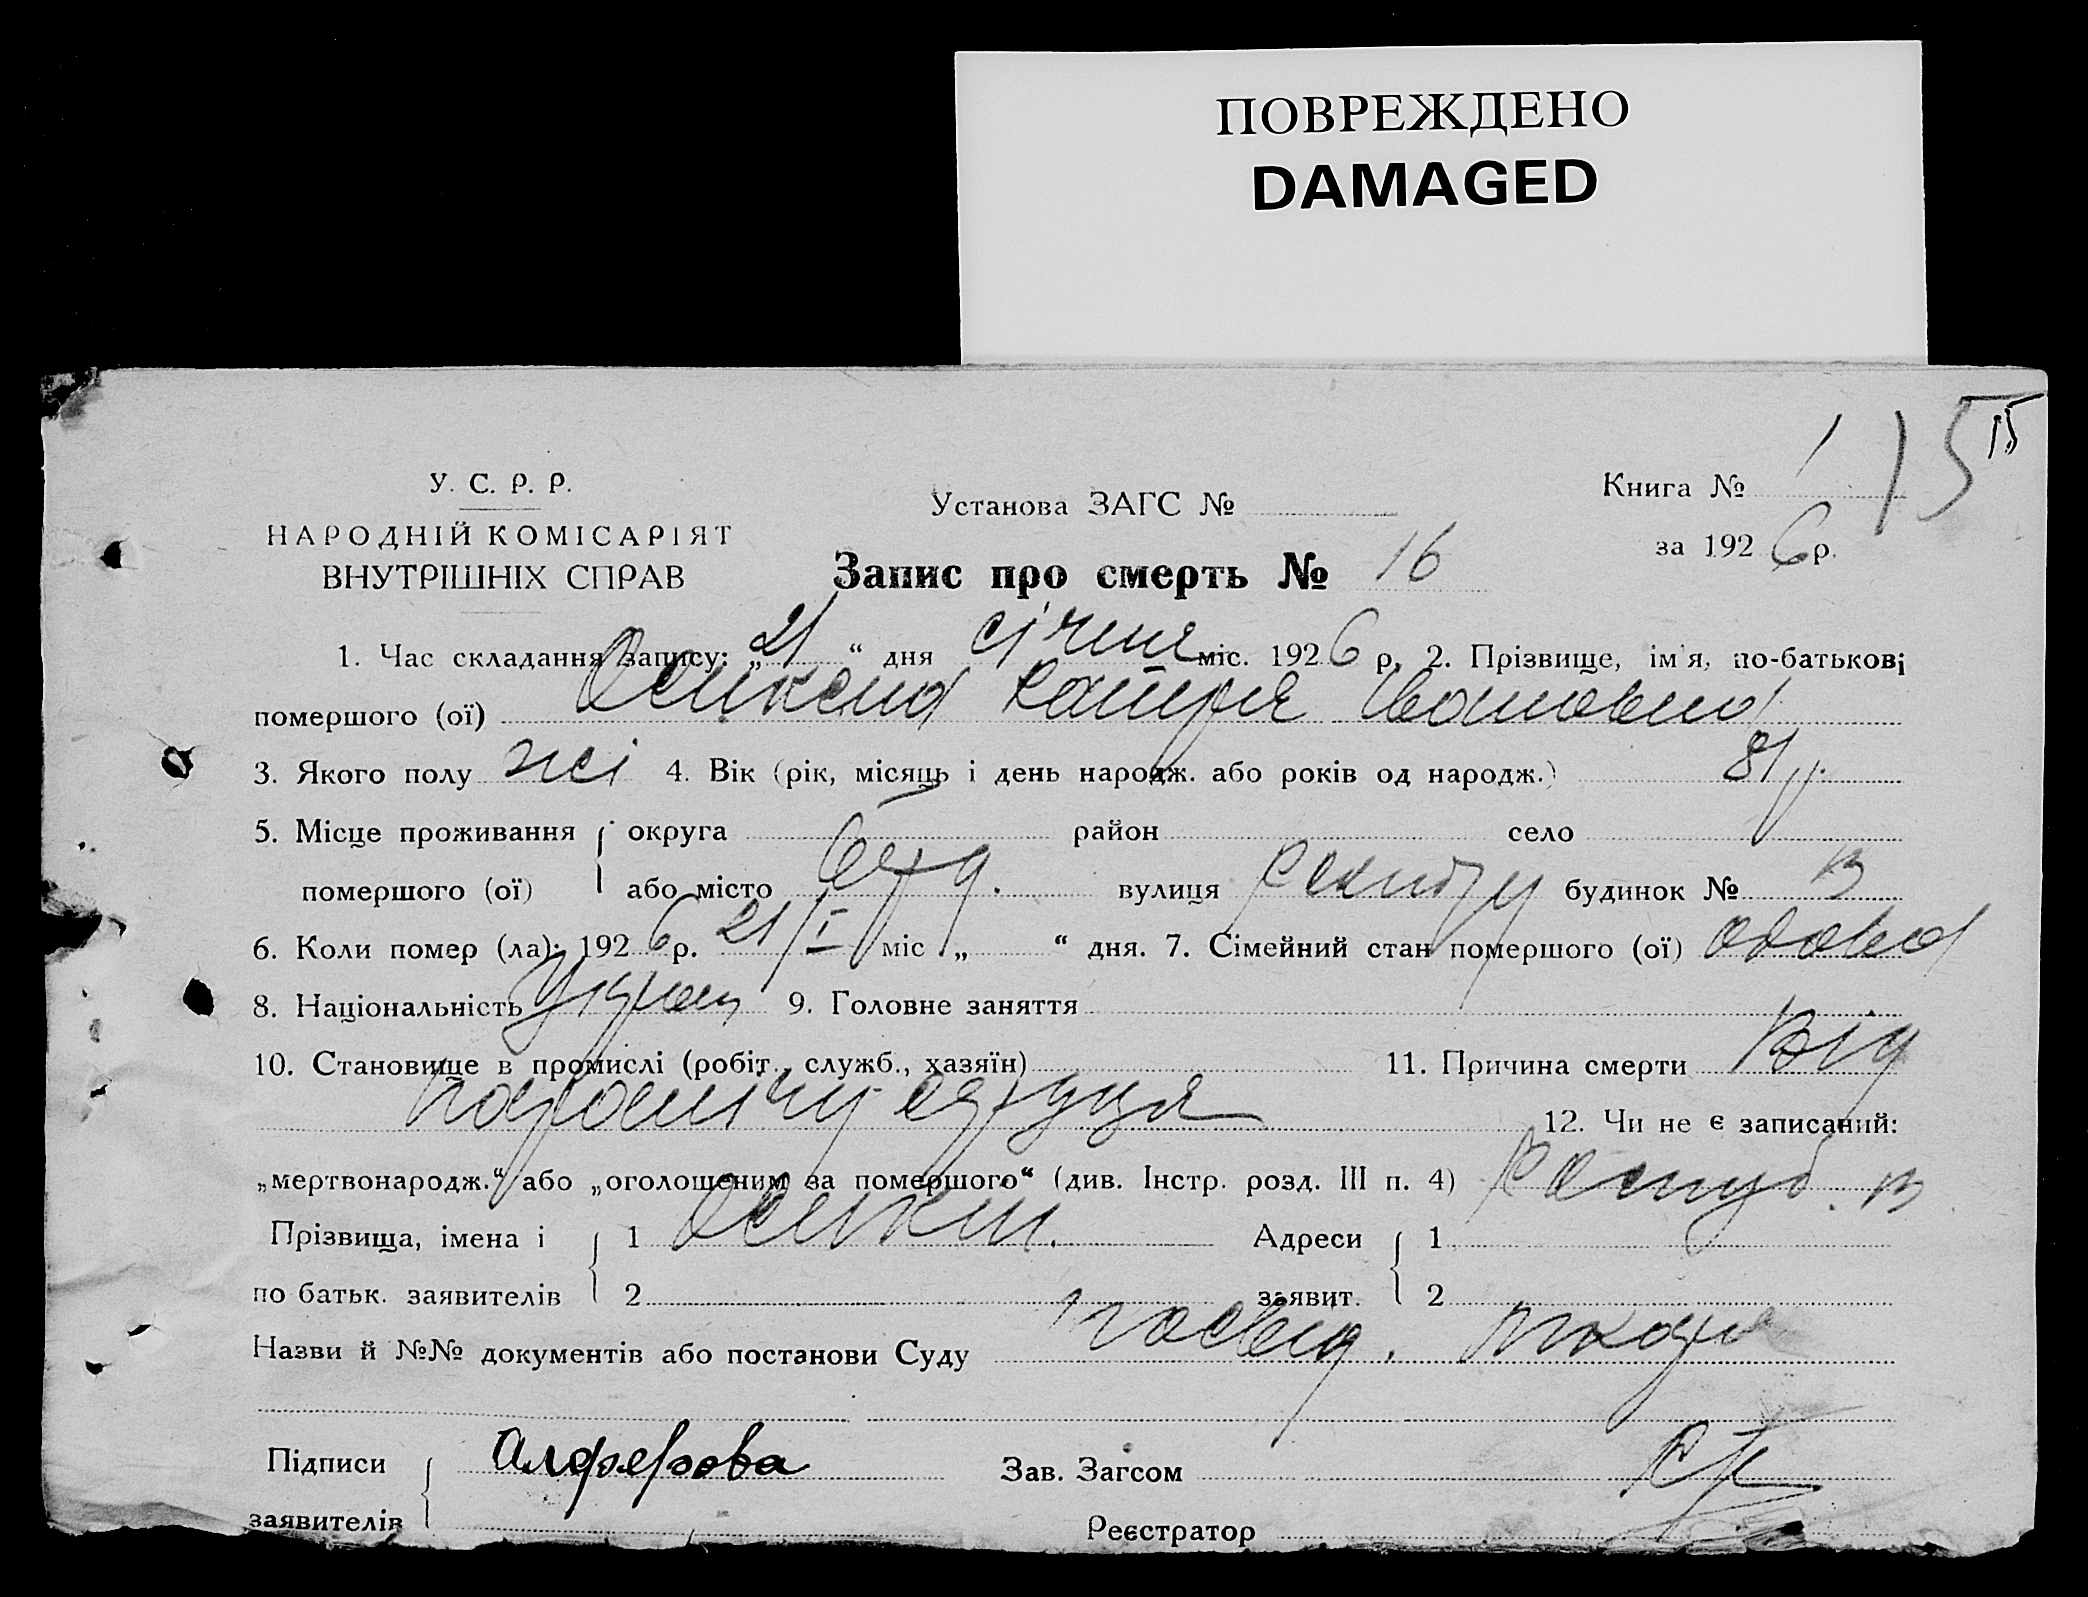 ПОВРЕЖДЕНО
DAMAGED
15 15
У. С. Р. Р.
НАРОДНІЙ КОМІСАРІЯТ
ВНУТРІШНІХ СПРАВ
Установа ЗАГС №
Книга № 1
за 1926 р.
Запис про смерть № 16
1. Час складання запису: „21“ дня січня міс. 1926 р. 2. Прізвище, ім'я, по-батькові
помершого (ої) Катря Івановна
3. Якого полу жі 4. Вік (рік, місяць і день народж. або років од народж.) 81 р.
5. Місце проживання округа район село
помершого (ої) або місто вулиця будинок № 13
6. Коли помер (ла): 1926 р. 21/I міс „ “ дня. 7. Сімейний стан помершого (ої) вдова
8. Національність Україн 9. Головне заняття
10. Становище в промислі (робіт., служб., хазяїн) 11. Причина смерти Від
паралічу серця 12. Чи не є записаний:
„мертвонародж.“ або „оголошеним за помершого“ (див. Інстр. розд. III п. 4) 13
Прізвища, імена і 1 Адреси 1
по батьк. заявителів 2 заявит. 2
Назви й №№ документів або постанови Суду посвід. лікаря
Підписи Алферова Зав. Загсом
заявителів Реєстратор